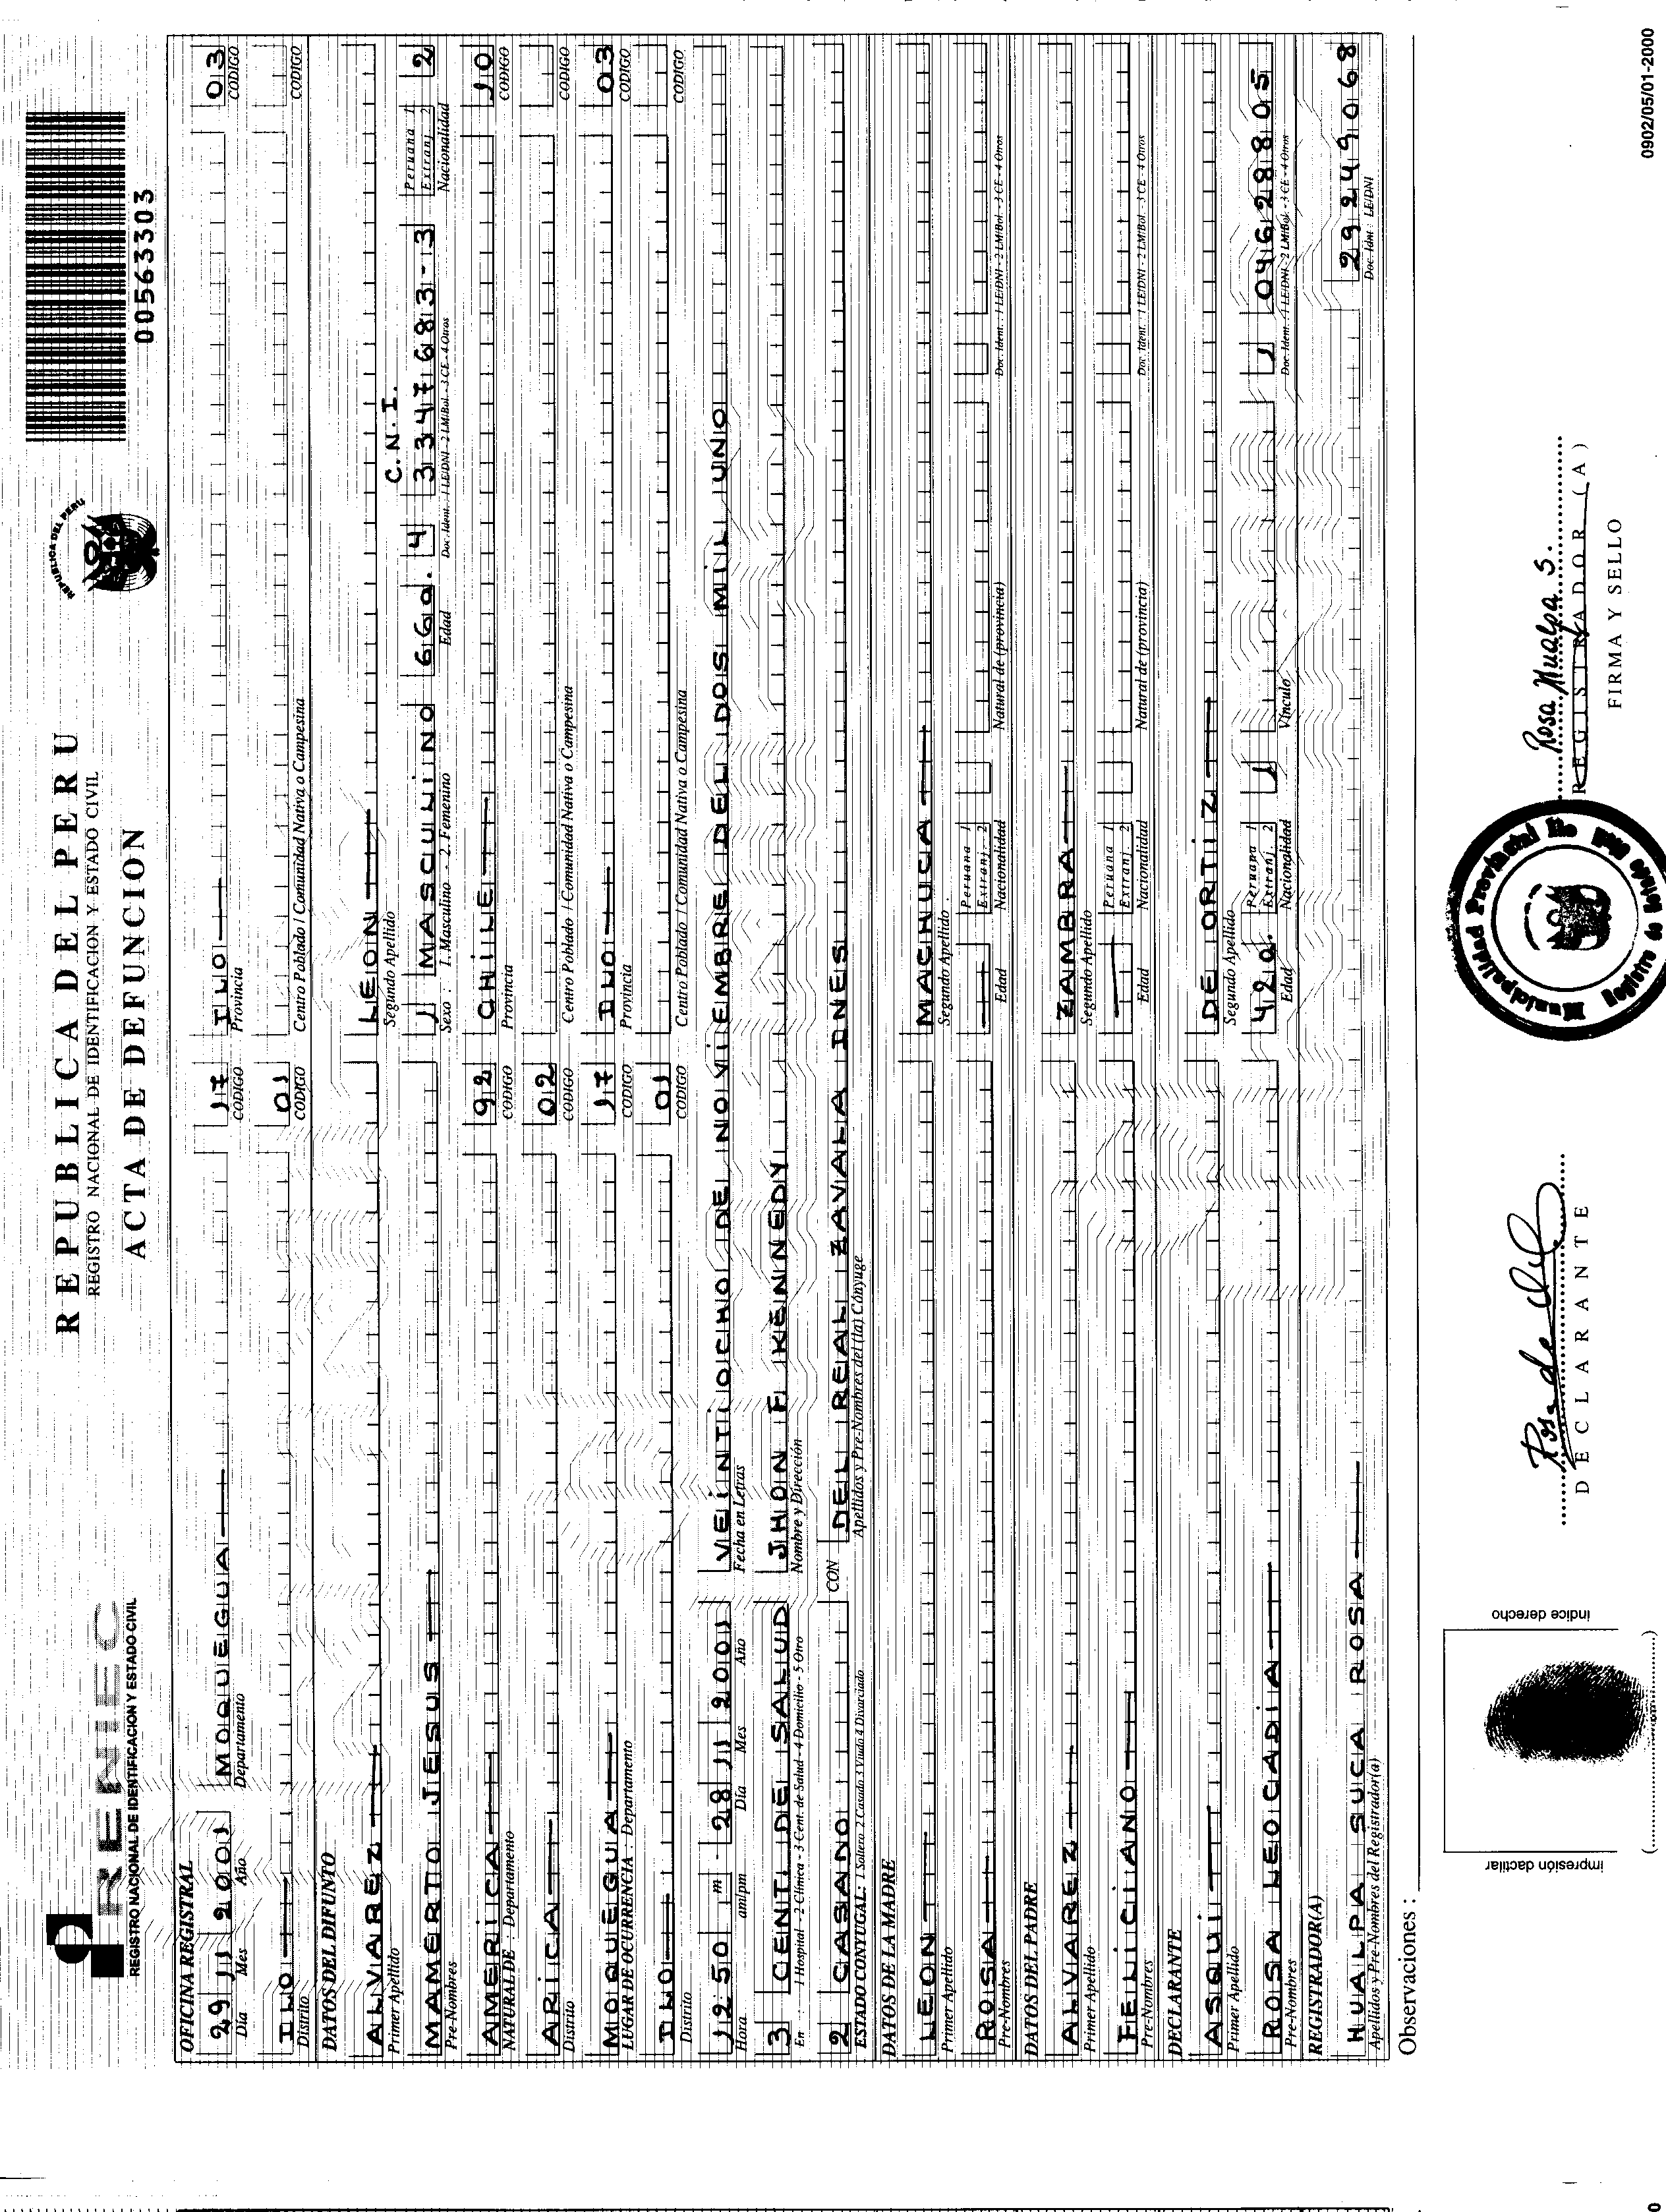 RENIEC
REGISTRO NACIONAL DE IDENTIFICACION Y ESTADO CIVIL
REPUBLICA DEL PERU
REGISTRO NACIONAL DE IDENTIFICACION Y ESTADO CIVIL
ACTA DE DEFUNCION
REPUBLICA DEL PERU
00563303
OFICINA REGISTRAL
29 11 2001 MOQUEGUA 17 ILO 03
Día Mes Año Departamento CODIGO Provincia CODIGO
ILO 01
Distrito CODIGO Centro Poblado / Comunidad Nativa o Campesina CODIGO
DATOS DEL DIFUNTO
ALVAREZ LEON
Primer Apellido Segundo Apellido
C.N.I.
MAMERTO JESUS 1 MASCULINO 66a. 4 3347683-3 Peruana 1 Extranj. 2 2
Pre-Nombres Sexo : 1. Masculino - 2. Femenino Edad Doc. Ident. : 1 LE/DNI - 2 LM/Bol. - 3 CE - 4 Otros Nacionalidad
AMERICA 92 CHILE 10
NATURAL DE : Departamento CODIGO Provincia CODIGO
ARICA 02
Distrito CODIGO Centro Poblado / Comunidad Nativa o Campesina CODIGO
MOQUEGUA 17 ILO 03
LUGAR DE OCURRENCIA : Departamento CODIGO Provincia CODIGO
ILO 01
Distrito CODIGO Centro Poblado / Comunidad Nativa o Campesina CODIGO
12:50 m 28 11 2001 VEINTIOCHO DE NOVIEMBRE DEL DOS MIL UNO
Hora am/pm Día Mes Año Fecha en Letras
3 CENT. DE SALUD JHON F KENNEDY
En : 1 Hospital - 2 Clínica - 3 Cent. de Salud - 4 Domicilio - 5 Otro Nombre y Dirección
2 CASADO CON DEL REAL ZAVALA INES
ESTADO CONYUGAL: 1 Soltero 2 Casado 3 Viudo 4 Divorciado Apellidos y Pre-Nombres del (la) Cónyuge
DATOS DE LA MADRE
LEON MACHUCA
Primer Apellido Segundo Apellido
ROSA Peruana 1 Extranj. 2
Pre-Nombres Edad Nacionalidad Natural de (provincia) Doc. Ident. : 1 LE/DNI - 2 LM/Bol. - 3 CE - 4 Otros
DATOS DEL PADRE
ALVAREZ ZAMBRA
Primer Apellido Segundo Apellido
FELICIANO Peruana 1 Extranj. 2
Pre-Nombres Edad Nacionalidad Natural de (provincia) Doc. Ident. : 1 LE/DNI - 2 LM/Bol. - 3 CE - 4 Otros
DECLARANTE
ASQUI DE ORTIZ
Primer Apellido Segundo Apellido
ROSA LEOCADIA 42a. Peruana 1 Extranj. 2 1 1 04628805
Pre-Nombres Edad Nacionalidad Vínculo Doc. Ident. : 1 LE/DNI - 2 LM/Bol. - 3 CE - 4 Otros
REGISTRADOR(A)
HUALPA SUCA ROSA 29249068
Apellidos y Pre-Nombres del Registrador(a) Doc. Idnt : LE/DNI
Observaciones :
impresión dactilar
índice derecho
Rosa de
DECLARANTE
Municipalidad Provincial Ilo
Rosa Hualpa S.
REGISTRADOR (A)
FIRMA Y SELLO
0902/05/01-2000